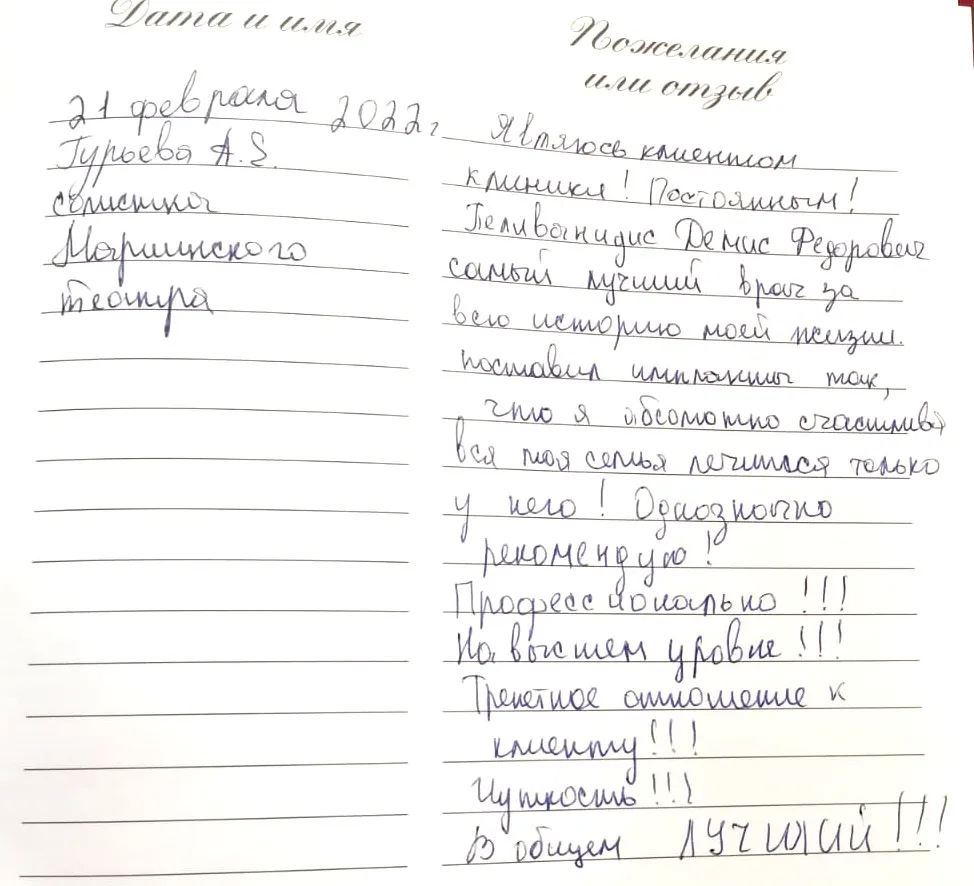 Дата и имя
21 февраля 2022г
Гурьева А.
солистка
Мариинского
театра
Пожелания
или отзыв
Являюсь клиентом
клиники! Постоянным!
Пеливанидис Демис Федорович
самый лучший врач за
всю историю моей жизни.
поставил импланты так,
что я абсолютно счастлива
вся моя семья лечится только
у него! Однозначно
рекомендую!
Профессионально!!!
На высшем уровне!!!
Трепетное отношение к
клиенту!!!
Чуткость!!!
В общем ЛУЧШИЙ!!!